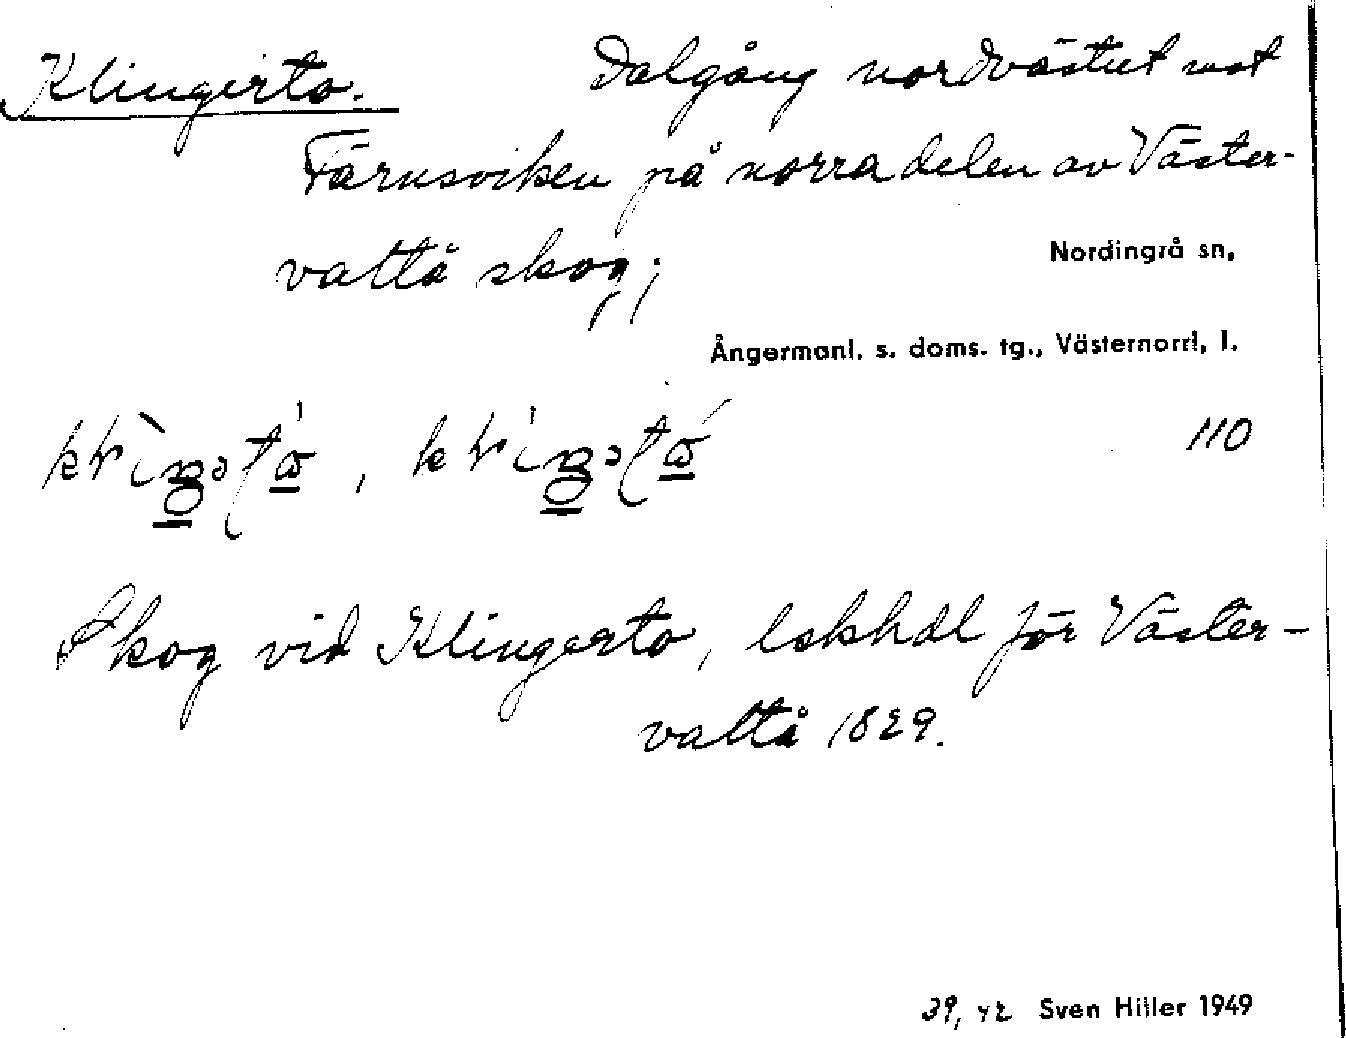 Klingerto. Dalgång nordvästut mot
Färnsviken på norra delen av Väster-
vattå skog;
Nordingrå sn,
Ångermanl. s. doms. tg., Västernorrl, l.
110
Skog vid Klingerto, lskhdl för Väster-
vattå 1829.
39, 42 Sven Hiller 1949